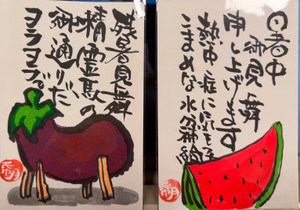 残暑見舞
精霊馬の
御通りだ
暑中
御見舞
申し上げます
熱中症に気をつけ
こまめな水分補給